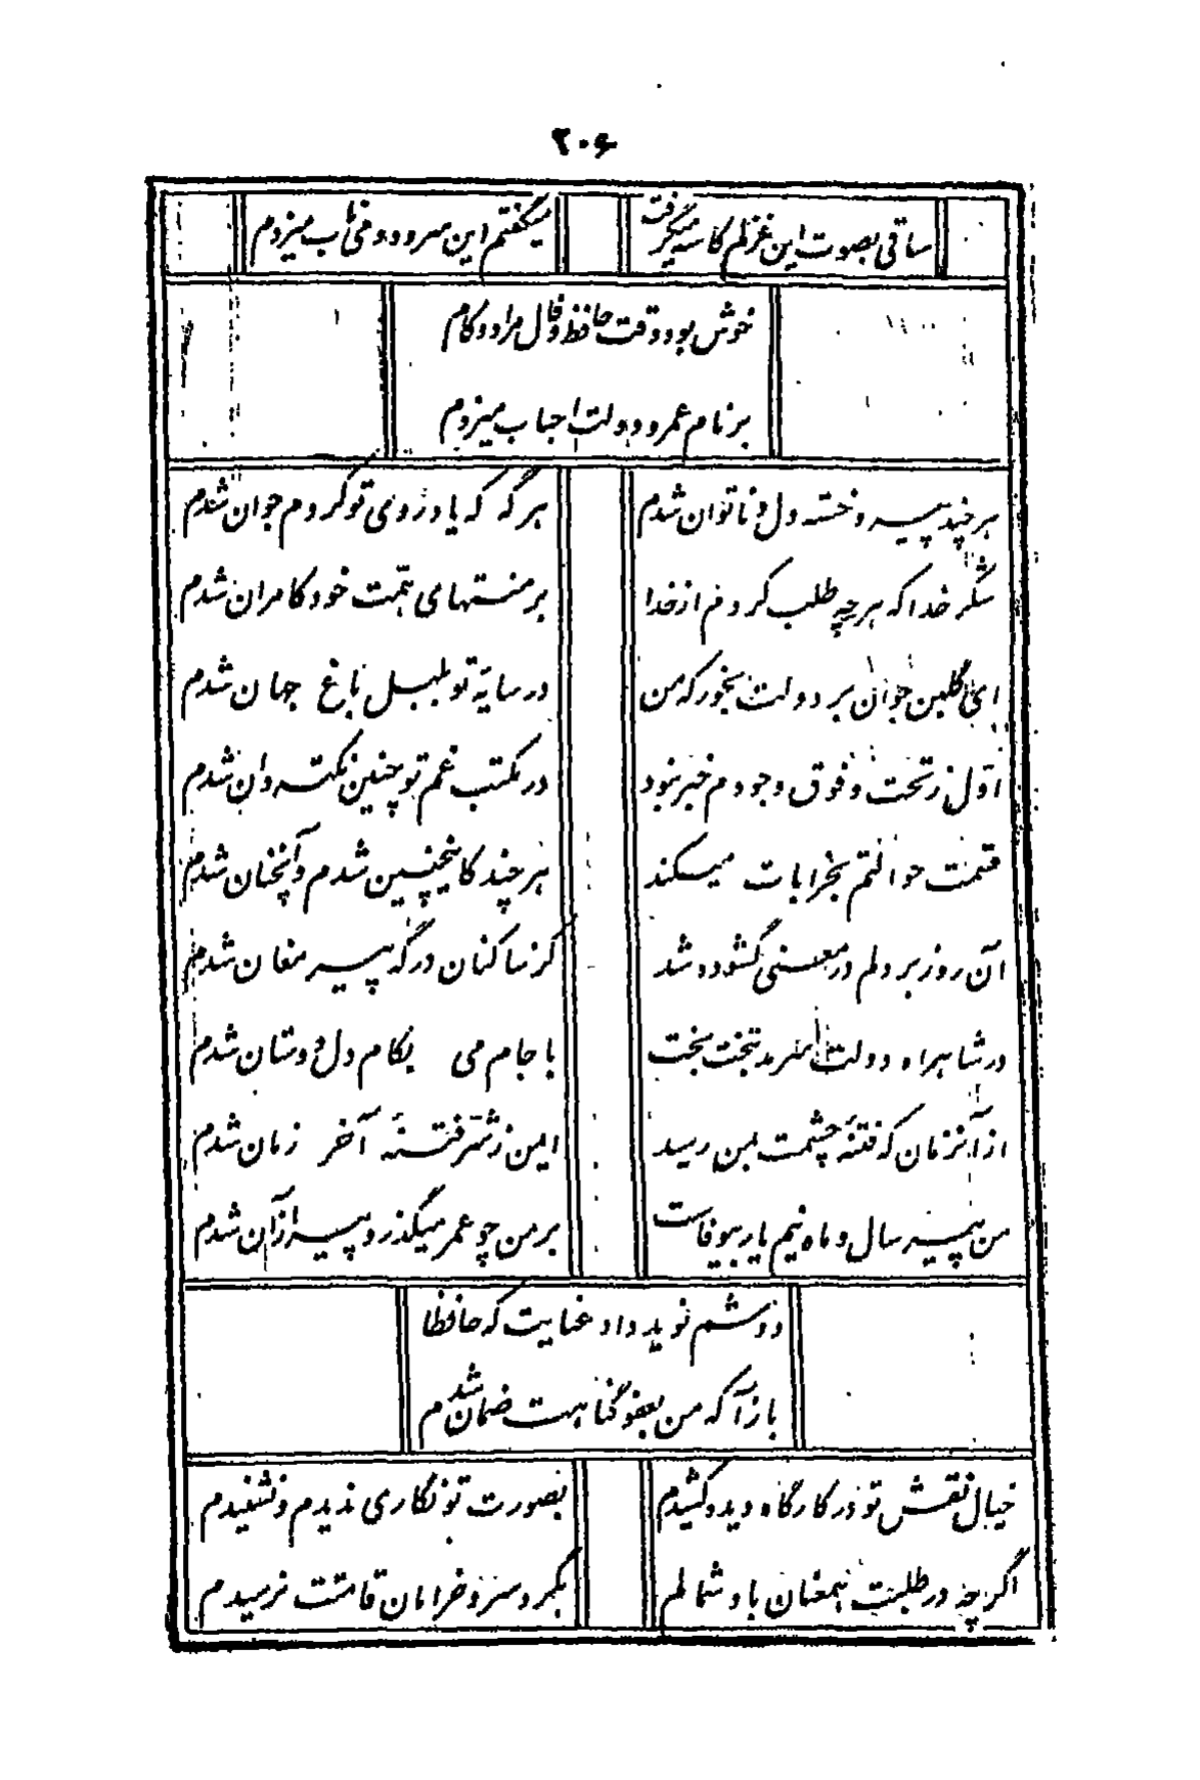 ۲۰۶
ساقی بصوت این غزلم کاسه میگرفت
میگفتم این سرود و می ناب میزدم
خوش بود وقت حافظ و فال مراد و کام
بر نام عمر و دولت احباب میزدم
هر چند پیر و خسته دل و ناتوان شدم
هر گه که یاد روی تو کردم جوان شدم
شکر خدا که هر چه طلب کردم از خدا
بر منتهای همت خود کامران شدم
ای گلبن جوان بر دولت بخور که من
در سایهٔ تو بلبل باغ جهان شدم
اول ز تحت و فوق وجودم خبر نبود
در مکتب غم تو چنین نکته دان شدم
قسمت حوالتم بخرابات میکند
هر چند کاینچنین شدم و آنچنان شدم
آن روز بر دلم در معنی گشوده شد
کز ساکنان درگه پیر مغان شدم
در شاهراه دولت سرمد بتخت بخت
با جام می بکام دل دوستان شدم
از آن زمان که فتنهٔ چشمت بمن رسید
ایمن ز شر فتنهٔ آخر زمان شدم
من پیر سال و ماه نیم یار بیوفاست
بر من چو عمر میگذرد پیر از آن شدم
دوشم نوید داد عنایت که حافظا
باز آ که من بعفو گناهت ضمان شدم
خیال نقش تو در کارگاه دیده کشیدم
بصورت تو نگاری ندیدم و نشنیدم
اگر چه در طلبت همعنان باد شمالم
بگرد سرو خرامان قامتت نرسیدم